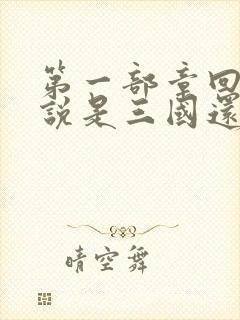 第一部章回
說是三國還
晴空舞